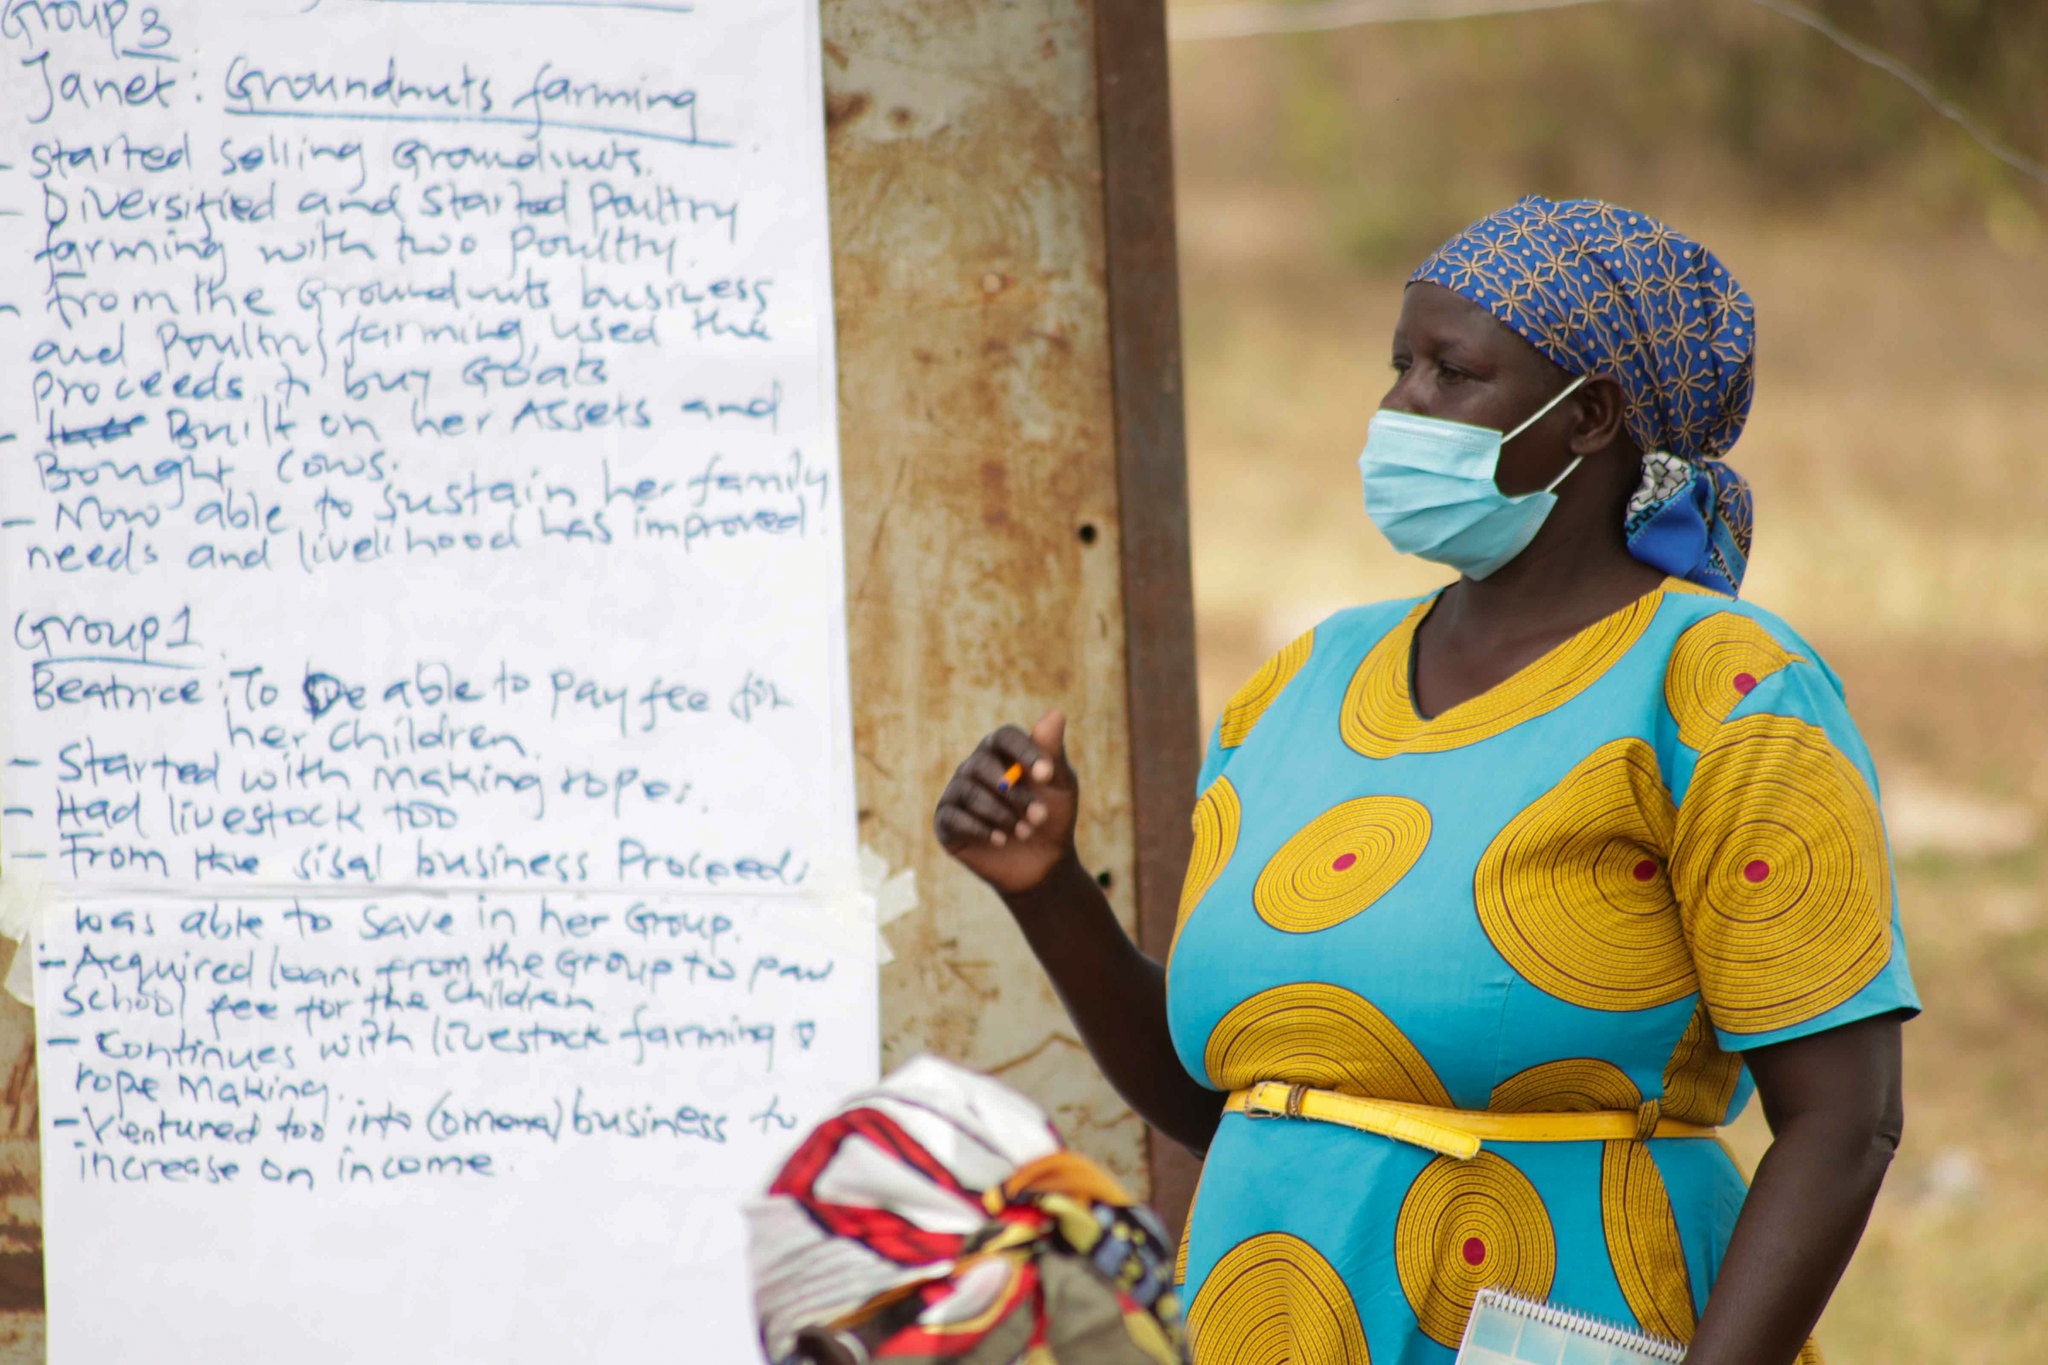 Group 3
Janet: Groundnuts farming
- Started selling Groundnuts.
- Diversified and started Poultry
farming with two poultry.
- From the Groundnuts business
and Poultry farming, used the
proceeds to buy Goats
- Built on her Assets and
Bought Cows.
- Now able to sustain her family
needs and livelihood has improved.
Group 1
Beatrice: To be able to pay fee for
her children.
- Started with making ropes.
- Had livestock too
- From the sisal business Proceeds
was able to save in her Group.
- Acquired loans from the Group to pay
School fee for the children
- Continues with livestock farming &
rope making.
- Ventured too into (omena) business to
increase on income.